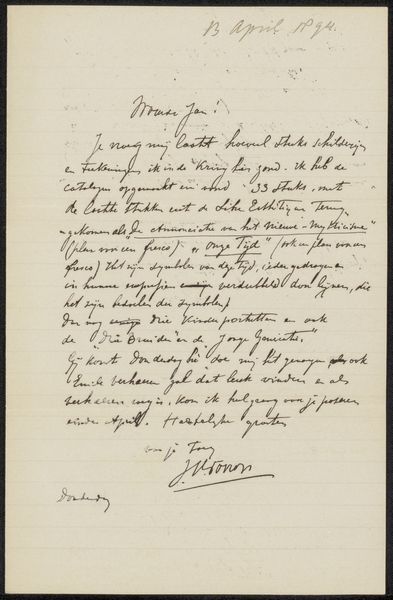 13 April 1894.
Waarde Jan!
Je vroeg mij laatst hoeveel stuks schilderijen
en teekeningen ik in de Kring hier zond. Ik heb de
catalogus opgemaakt en vond 33 stuks, met
de laatste stukken uit de
gekomen als "De Annunciatie van het Nieuwe-Mysticisme"
(plan voor een fresco) "Onze Tijd" (ook een plan voor een
fresco) Het zijn symbolen van deze tijd, ieder gedragen en
in hunne verdubbeld door lijnen, die
het zijn der symbolen)
Dan nog drie Kinderportretten en ook
de "Drie Bruiden" en de Jonge Generatie".
Gij komt Donderdag doe mij het genoegen ook
Emile Verhaeren zal dat leuk vinden en als
Verhaeren weg is, kom ik heel graag voor je poseeren
einde April. Hartelijke groeten
van je Toon
J.Th.Toorop
Donderdag